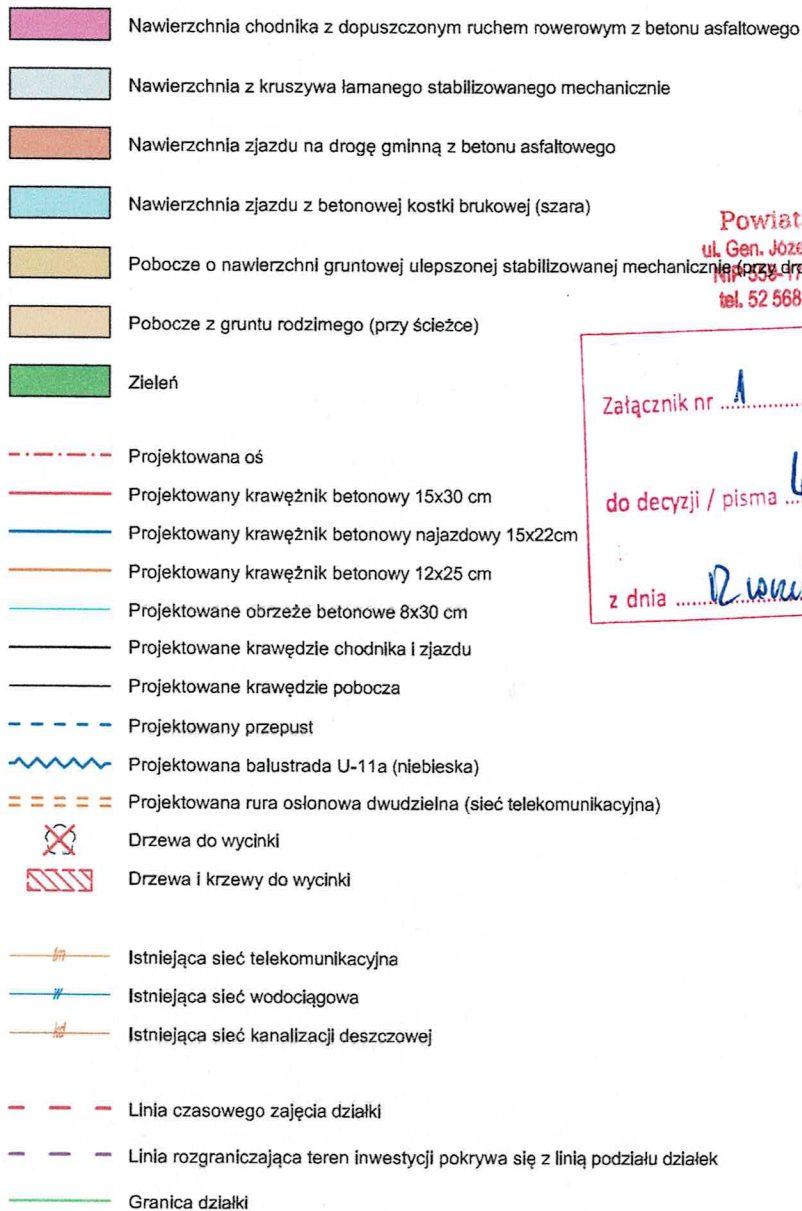 Nawierzchnia chodnika z dopuszczonym ruchem rowerowym z betonu asfaltowego
Nawierzchnia z kruszywa łamanego stabilizowanego mechanicznie
Nawierzchnia zjazdu na drogę gminną z betonu asfaltowego
Nawierzchnia zjazdu z betonowej kostki brukowej (szara)
Powiat
ul. Gen. Józe
Pobocze o nawierzchni gruntowej ulepszonej stabilizowanej mechanicznie (przy dro
NIP 558-17
tel. 52 568
Pobocze z gruntu rodzimego (przy ścieżce)
Zieleń
Załącznik nr 1
do decyzji / pisma
z dnia 12
Projektowana oś
Projektowany krawężnik betonowy 15x30 cm
Projektowany krawężnik betonowy najazdowy 15x22cm
Projektowany krawężnik betonowy 12x25 cm
Projektowane obrzeże betonowe 8x30 cm
Projektowane krawędzie chodnika i zjazdu
Projektowane krawędzie pobocza
Projektowany przepust
Projektowana balustrada U-11a (niebieska)
Projektowana rura osłonowa dwudzielna (sieć telekomunikacyjna)
Drzewa do wycinki
Drzewa i krzewy do wycinki
Istniejąca sieć telekomunikacyjna
w Istniejąca sieć wodociągowa
kd Istniejąca sieć kanalizacji deszczowej
Linia czasowego zajęcia działki
Linia rozgraniczająca teren inwestycji pokrywa się z linią podziału działek
Granica działki